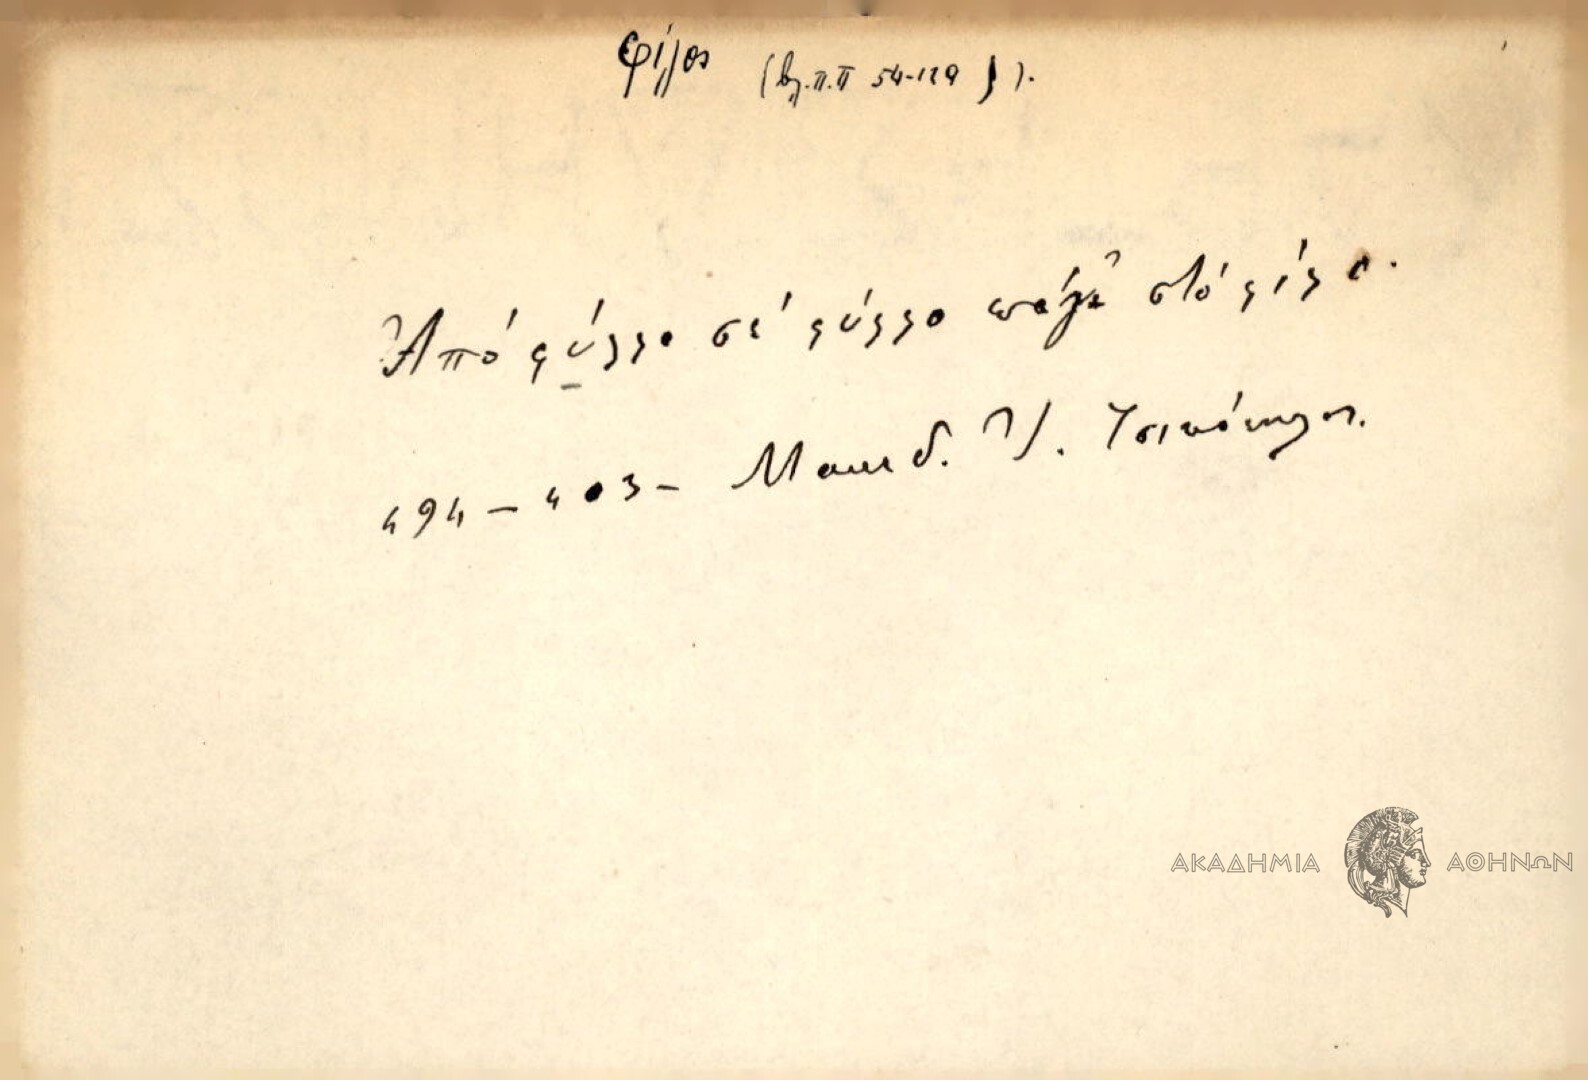 φίλος (βλ. π.π 54-129 ).
Ἀπό φύλλο σέ φύλλο πάγει στό φίλο.
494 - 403 - Μακεδ. Ἰ.
ΑΚΑΔΗΜΙΑ ΑΘΗΝΩΝ